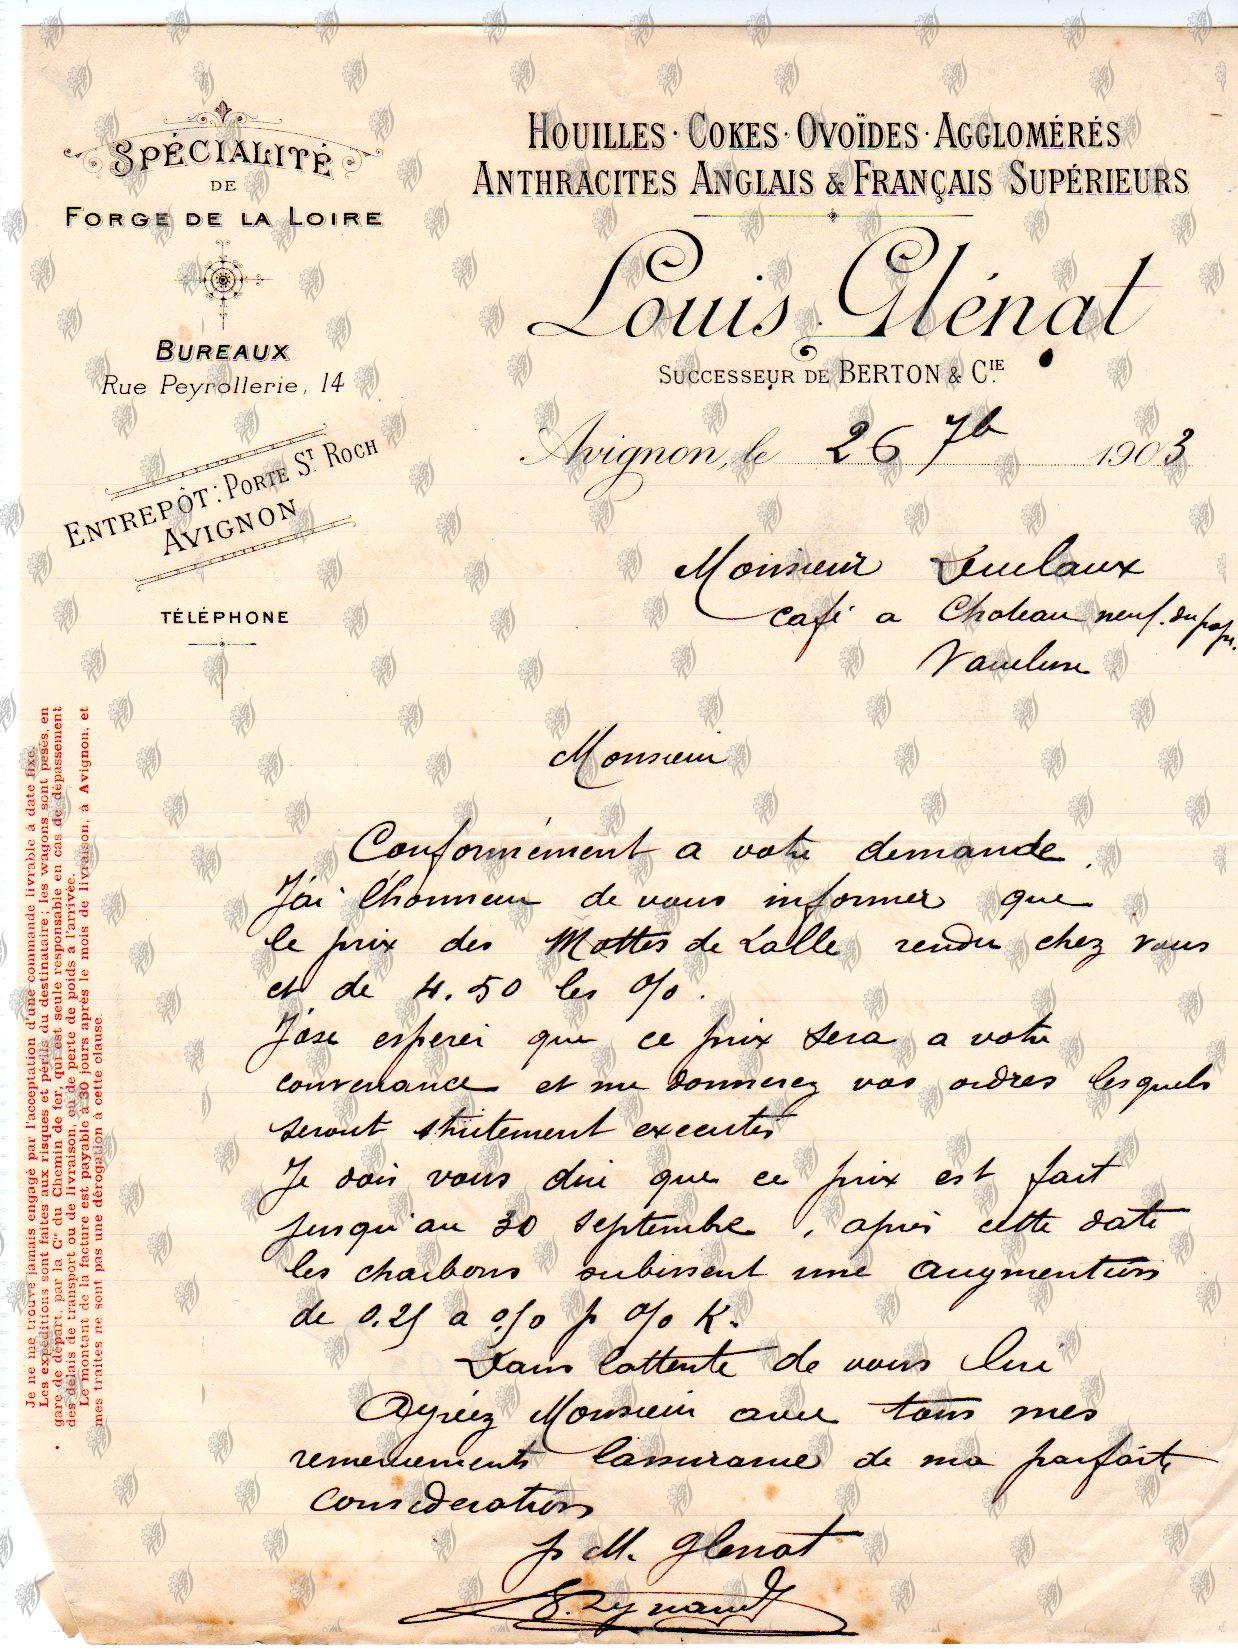 SPÉCIALITÉ
DE
FORGE DE LA LOIRE
BUREAUX
Rue Peyrollerie, 14
ENTREPÔT: PORTE ST ROCH
AVIGNON
TÉLÉPHONE
HOUILLES · COKES · OVOÏDES · AGGLOMÉRÉS
ANTHRACITES ANGLAIS & FRANÇAIS SUPÉRIEURS
Louis Glénat
SUCCESSEUR DE BERTON & CIE
Avignon, le 26 7b 1903
Monsieur Duclaux
café a Chateau neuf. du pape.
Vaucluse
Monsieur
Conformément a votre demande.
J'ai l'honneur de vous informer que
le prix des Mottes de Lalle rendu chez vous
et de 4.50 les %.
J'ose esperer que ce prix sera a votre
convenance et me donnerez vos ordres lesquels
seront strictement executés
Je dois vous dire que ce prix est fait
jusqu'au 30 septembre, après cette date
les charbons subissent une augmention
de 0.25 a % p % K.
Dans lattente de vous lire
Agréez Monsieur avec tous mes
remerciements lassurance de ma parfaite
consideration
p M. Glenat
Je ne me trouve jamais engagé par l'acceptation d'une commande livrable à date fixe.
Les expéditions sont faites aux risques et périls du destinataire; les wagons sont pesés, en
gare de départ, par la Cie du Chemin de fer, qui est seule responsable en cas de dépassement
des délais de transport ou de livraison, ou de perte de poids à l'arrivée.
Le montant de la facture est payable à 30 jours après le mois de livraison, à Avignon, et
mes traites ne sont pas une dérogation à cette clause.